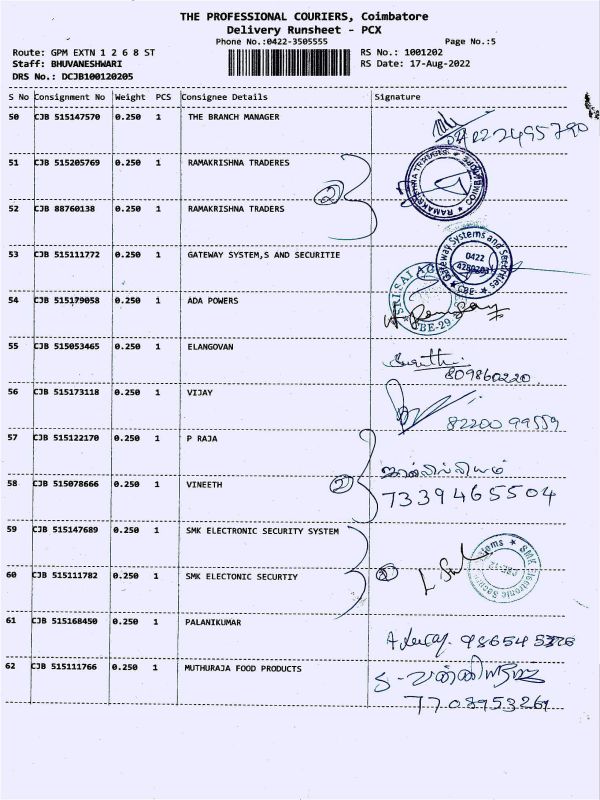 THE PROFESSIONAL COURIERS, Coimbatore
Delivery Runsheet - PCX
Phone No.:0422-3505555 Page No.:5
Route: GPM EXTN 1 2 6 8 ST RS No.: 1001202
Staff: BHUVANESHWARI RS Date: 17-Aug-2022
DRS No.: DCJB100120205
S No Consignment No Weight PCS Consignee Details Signature
50 CJB 515147570 0.250 1 THE BRANCH MANAGER
0422 2495790
51 CJB 515205769 0.250 1 RAMAKRISHNA TRADERES
RAMAKRISHNA TRADERS
2
52 CJB 88760138 0.250 1 RAMAKRISHNA TRADERS
53 CJB 515111772 0.250 1 GATEWAY SYSTEM,S AND SECURITIE
Gateway Systems and Securities
0422
CBE-
54 CJB 515179058 0.250 1 ADA POWERS
SRI SAI
CBE-29
55 CJB 515053465 0.250 1 ELANGOVAN
809860220
56 CJB 515173118 0.250 1 VIJAY
82200 99559
57 CJB 515122170 0.250 1 P RAJA
58 CJB 515078666 0.250 1 VINEETH
2
7339465504
59 CJB 515147689 0.250 1 SMK ELECTRONIC SECURITY SYSTEM
60 CJB 515111782 0.250 1 SMK ELECTONIC SECURTIY
SMK Electronic Security Systems
61 CJB 515168450 0.250 1 PALANIKUMAR
62 CJB 515111766 0.250 1 MUTHURAJA FOOD PRODUCTS
7708953261